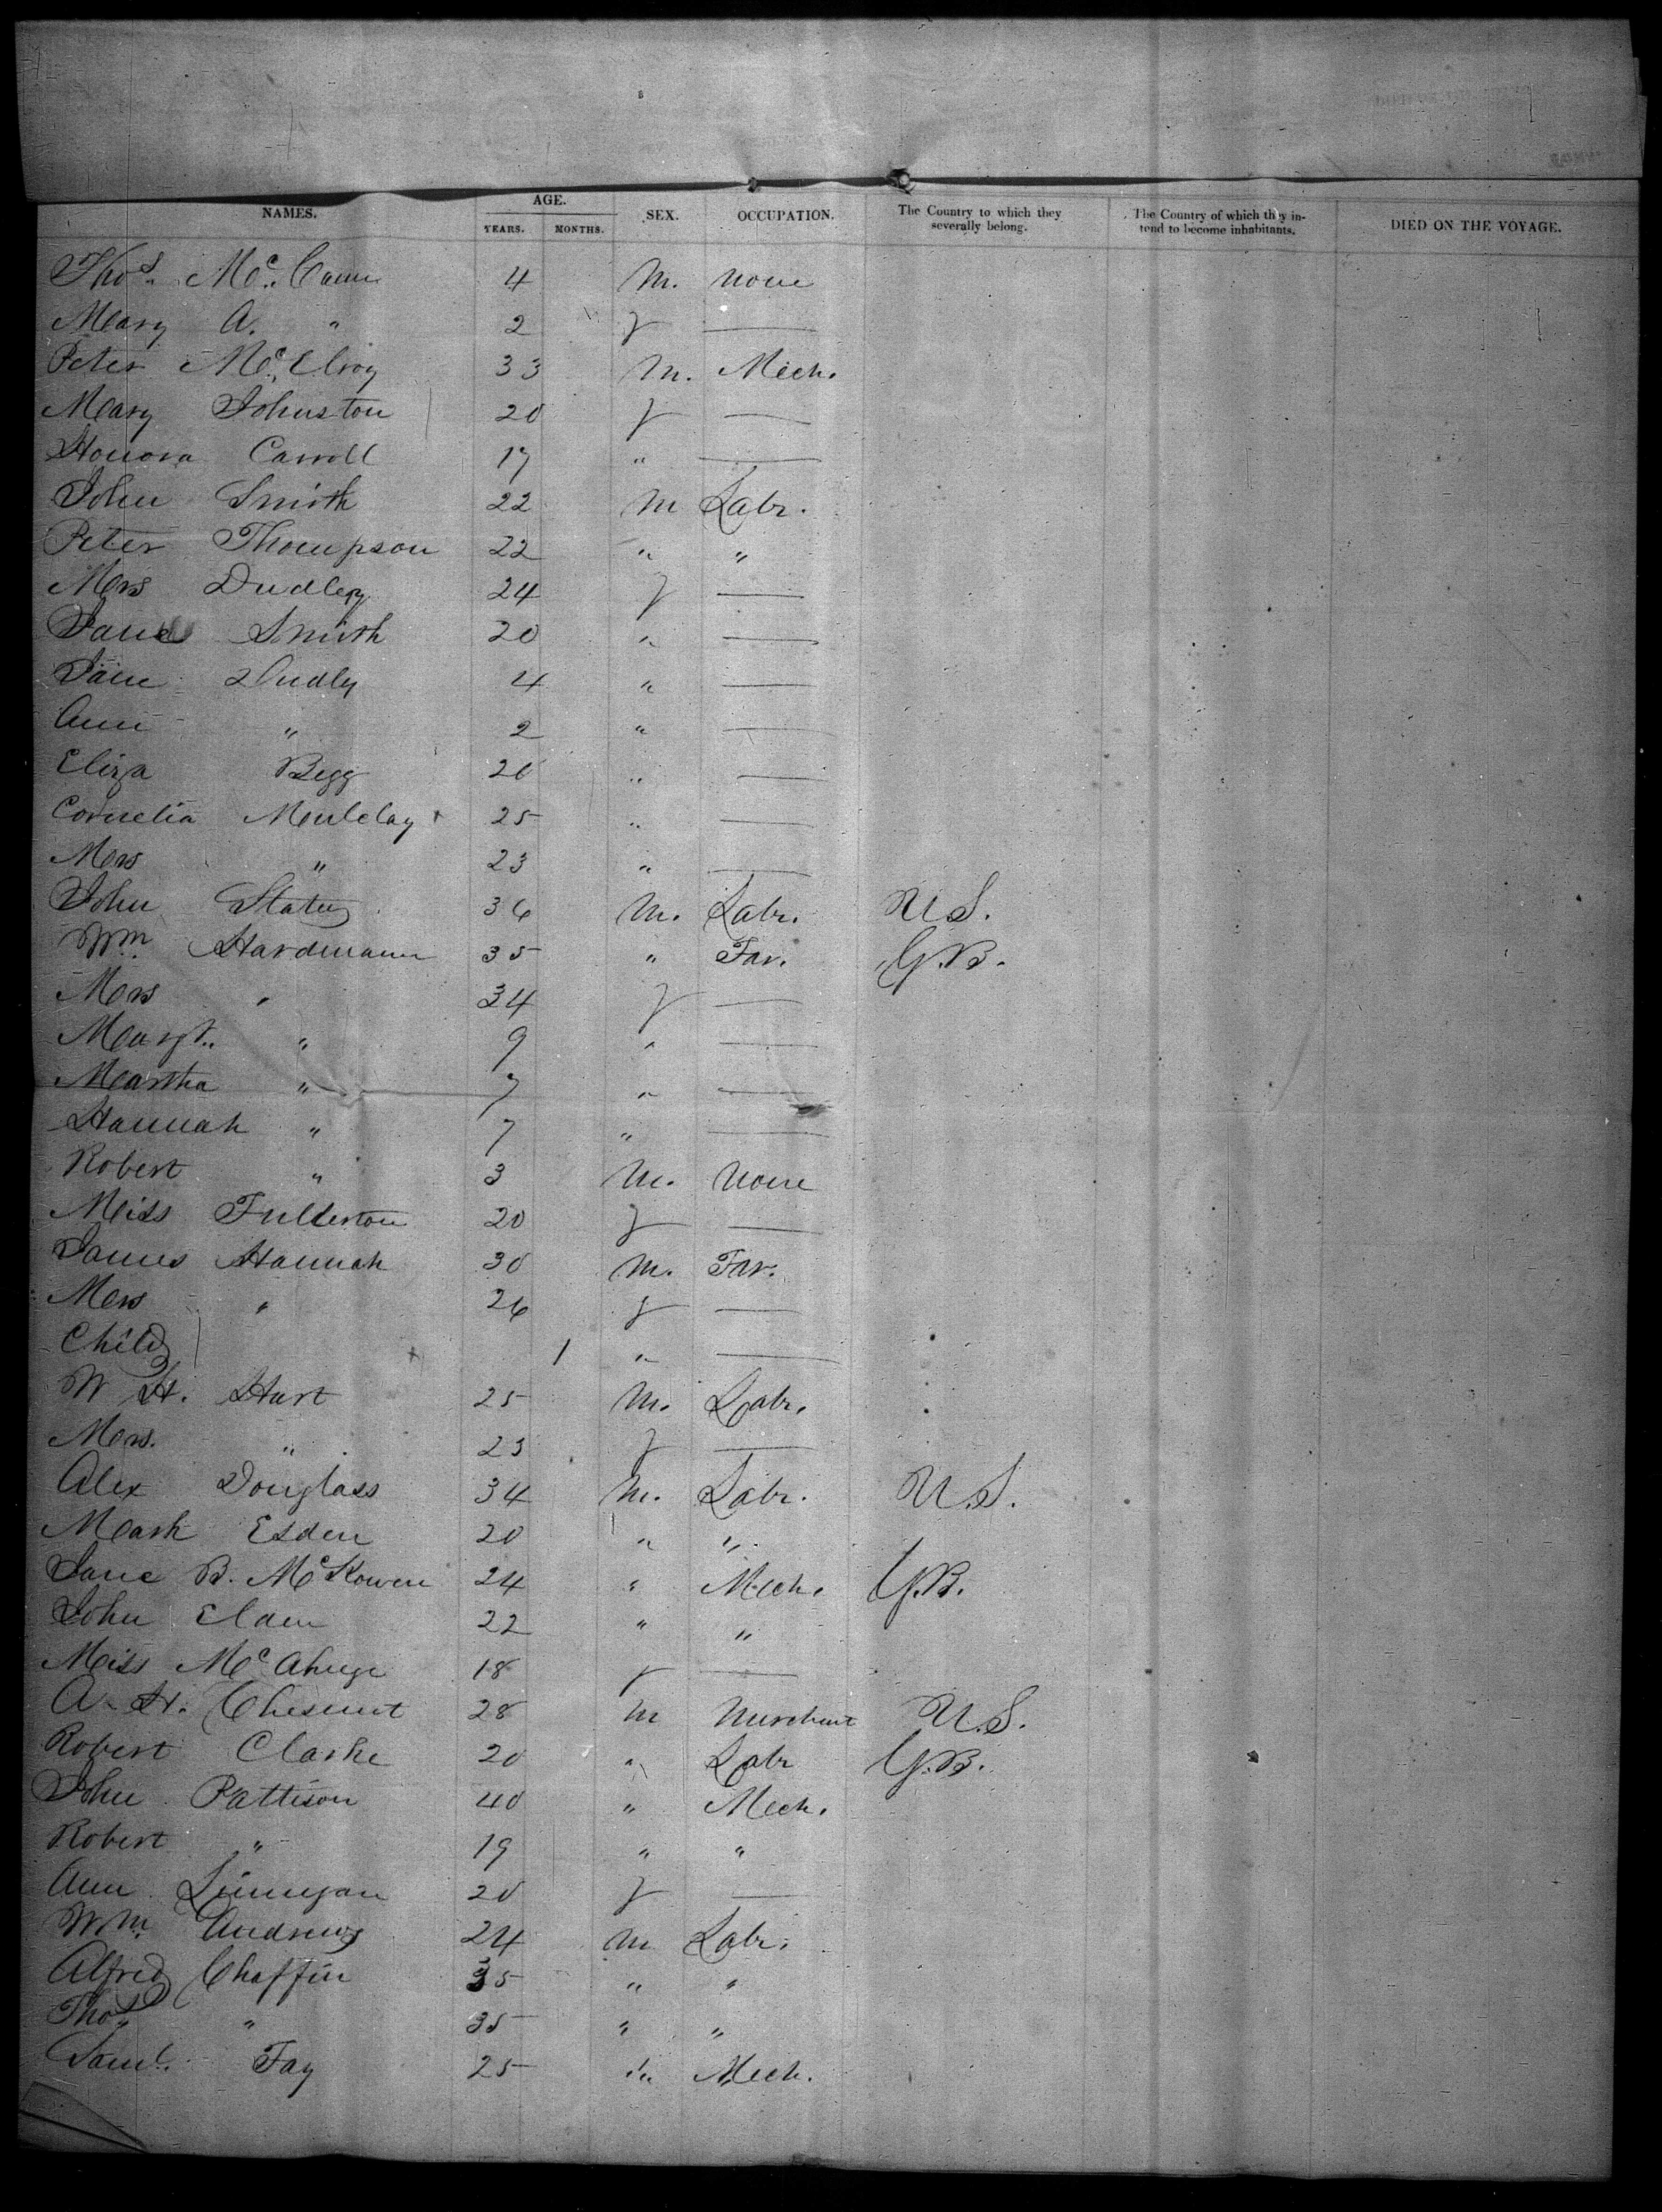 NAMES. AGE. YEARS. MONTHS. SEX. OCCUPATION. The Country to which they severally belong. The Country of which they intend to become inhabitants. DIED ON THE VOYAGE.
Thos. Mc. Cann 4 M. None
Mary A. " 2 f —
Peter Mc. Elroy 33 M. Mech.
Mary Johnston 20 f —
Honora Carroll 17 " —
John Smith 22 M Labr.
Peter Thompson 22 " "
Mrs Dudley 24 f —
Jane Smith 20 " —
Jane Dudly 4 " —
Ann " 2 " —
Eliza Begg 20 " —
Cornelia 25 " —
Mrs " 23 " —
John 36 M. Labr. U.S.
Wm. Hardmann 35 " Far. G.B.
Mrs " 34 f —
Margt. " 9 " —
Martha " 7 " —
Hannah " 7 " —
Robert " 3 M. None
Miss Fullerton 20 f —
James Hannah 30 M. Far.
Mrs " 26 f —
Child 1 " —
W H. Hart 25 M. Labr.
Mrs. " 23 f —
Alex Douglass 34 M. Labr. U.S.
Mark Esden 20 " "
Jane B. McKowen 24 " Mech. G.B.
John Elam 22 " "
Miss 18 f —
A. H. Chesnut 28 M Merchant U.S.
Robert Clarke 20 " Labr G.B.
John Pattison 40 " Mech.
Robert " 19 " "
Ann Linnegan 20 f —
Wm. Andrews 24 M Labr.
Alfred Chaffin 35 " "
Thos. " 35 " "
Saml. Fay 25 " Mech.